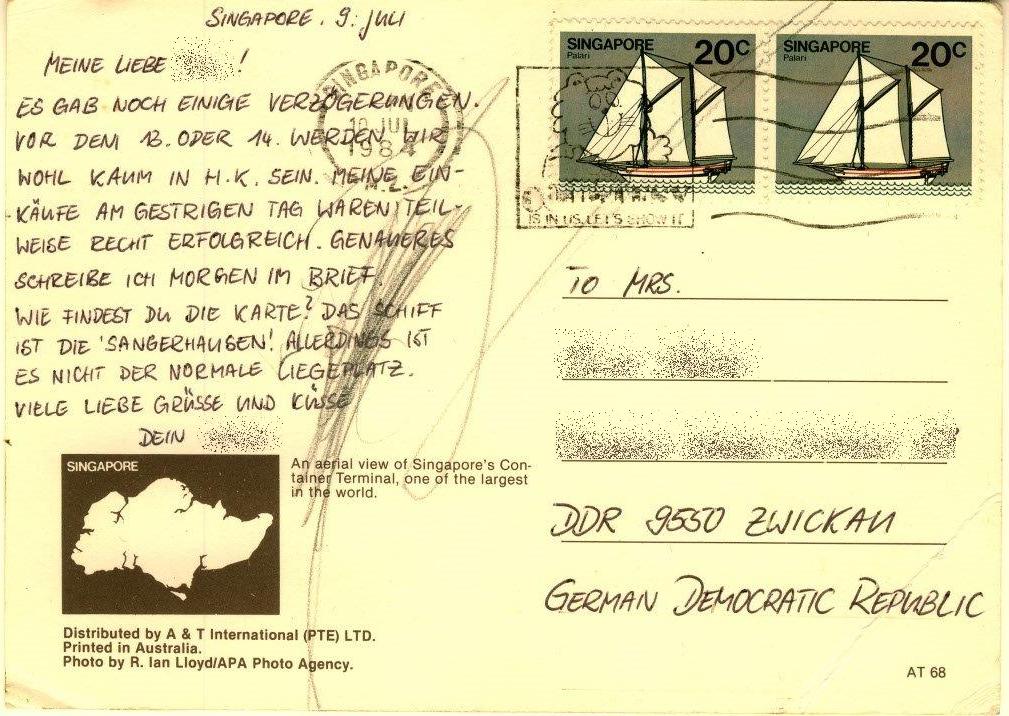 SINGAPORE. 9. JULI
MEINE LIEBE !
ES GAB NOCH EINIGE VERZÖGERUNGEN.
VOR DEM 13. ODER 14. WERDEN WIR
WOHL KAUM IN H.K. SEIN. MEINE EIN-
KÄUFE AM GESTRIGEN TAG WAREN TEIL-
WEISE RECHT ERFOLGREICH. GENAUERES
SCHREIBE ICH MORGEN IM BRIEF.
WIE FINDEST DU DIE KARTE? DAS SCHIFF
IST DIE 'SANGERHAUSEN'! ALLERDINGS IST
ES NICHT DER NORMALE LIEGEPLATZ.
VIELE LIEBE GRÜSSE UND KÜSSE
DEIN
SINGAPORE
An aerial view of Singapore's Con-
tainer Terminal, one of the largest
in the world.
Distributed by A & T International (PTE) LTD.
Printed in Australia.
Photo by R. Ian Lloyd/APA Photo Agency.
SINGAPORE
10 JUL
1984
SINGAPORE 20C
Palari
SINGAPORE 20C
Palari
IS IN US. LET'S SHOW IT
TO MRS.
DDR 9550 ZWICKAU
GERMAN DEMOCRATIC REPUBLIC
AT 68